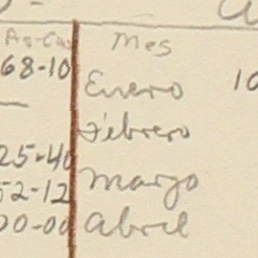 Mes
68-10 Enero 10
Febrero
25-40 Março
52-12
00-00 Abril